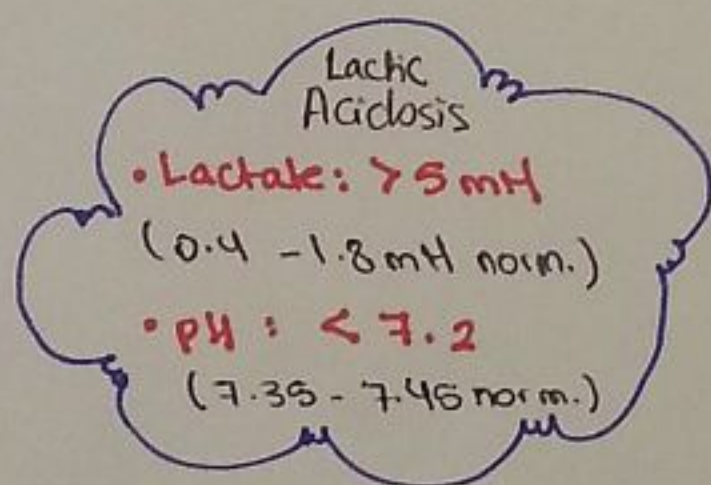 Lactic
Acidosis
• Lactate: > 5 mM
(0.4 - 1.8 mM norm.)
• pH : < 7.2
(7.35 - 7.45 norm.)